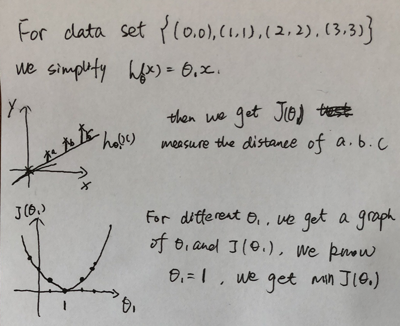 For data set {(0,0),(1,1),(2,2),(3,3)}
we simplify hθ(x) = θ₁x.
Y
a
b
c
hθ(x)
X
then we get J(θ₁)
measure the distance of a.b.c
J(θ₁)
1
θ₁
For different θ₁, we get a graph
of θ₁ and J(θ₁), we know
θ₁ = 1, we get min J(θ₁)